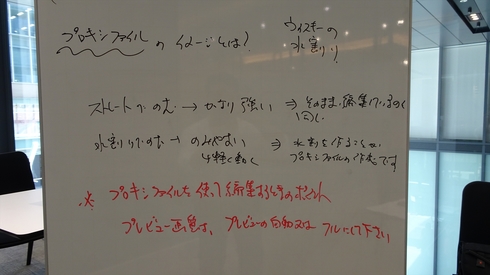 プロキシファイルのイメージとは?
ウイスキーの
水割り!
ストレートでのむ→かなり強い ⇒ そのまま編集しているのと
同じ
水割りでのむ→のみやすい ⇒ 水割を作ることが
軽く動く プロキシファイルの作成です
※ プロキシファイルを使って編集するときのポイント
プレビュー画質は、プレビューの自動又は フルにして下さい